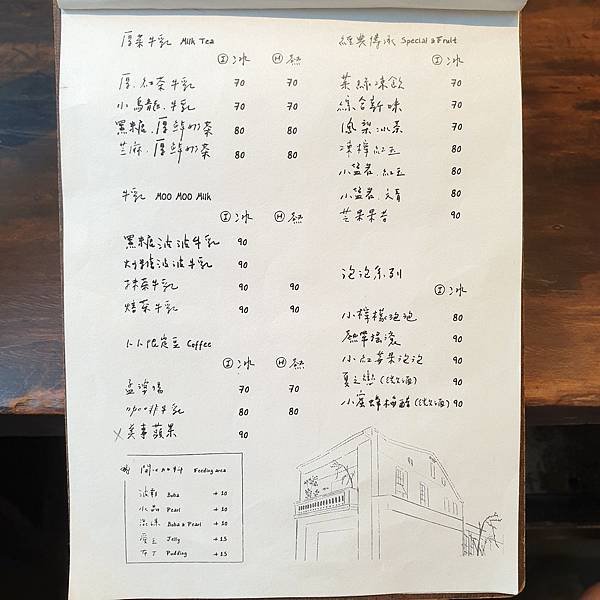 厚茶牛乳 Milk Tea
Ⓘ冰 Ⓗ熱
厚.紅茶牛乳 70 70
小烏龍.牛乳 70 70
黑糖.厚鮮奶茶 80 80
芝麻.厚鮮奶茶 80 80
牛乳 MOO MOO Milk
Ⓘ冰 Ⓗ熱
黑糖波波牛乳 90
波波牛乳 90
抹茶牛乳 90 90
焙茶牛乳 90 90
咖啡豆 Coffee
Ⓘ冰 Ⓗ熱
70 70
咖啡牛乳 80 80
美事蘋果 90
加料 Feeding area
波霸 Buba +10
水晶 Pearl +10
混珠 Buba & Pearl +10
愛玉 Jelly +15
布丁 Pudding +15
經典傳承 Special & Fruit
Ⓘ冰
茶絲凍飲 70
綜合新味 70
鳳梨冰茶 70
凍檸紅玉 80
小盆栽.紅玉 80
小盆栽.文青 80
芒果果昔 90
泡泡系列
Ⓘ冰
小檸檬泡泡 80
90
小紅莓果泡泡 90
夏之戀(微酒) 90
小蜜蜂梅醋(微酒) 90